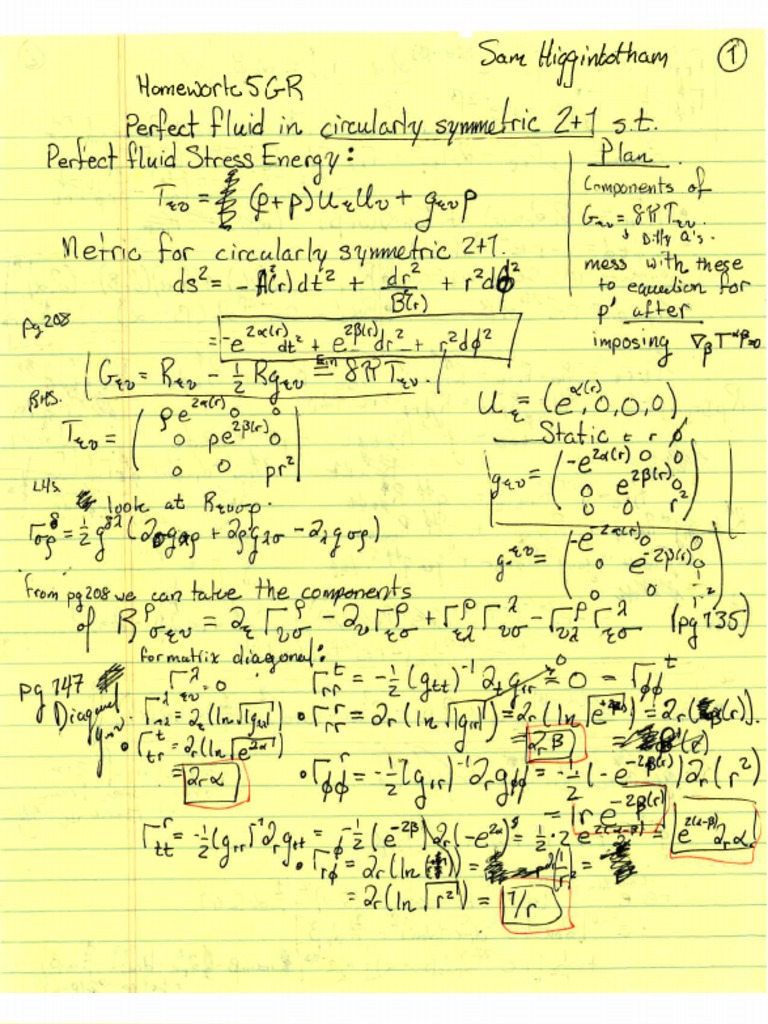 Sam Higginbotham 1
Homework 5 GR
Perfect fluid in circularly symmetric 2+1 s.t.
Perfect fluid Stress Energy:
T_μν = (ρ+p) U_μ U_ν + g_μν p
Plan
Components of
G_μν = 8πT_μν.
↓ Diffy Q's.
mess with these
to equation for
p' after
imposing ∇_β T^αβ = 0
Metric for circularly symmetric 2+1.
ds² = -A²(r)dt² + dr²/B²(r) + r²dϕ²
pg 208
= -e^{2α(r)}dt² + e^{2β(r)}dr² + r²dϕ²
G_μν = R_μν - 1/2 R g_μν = 8πT_μν.
RHS.
U_μ = (e^{α(r)}, 0, 0, 0)
Static t r ϕ
T_μν = ( ρe^{2α(r)} 0 0
0 pe^{2β(r)} 0
0 0 pr² )
g_μν = ( -e^{2α(r)} 0 0
0 e^{2β(r)} 0
0 0 r² )
LHS
look at R_μνσρ.
Γ^δ_σρ = 1/2 g^δλ (∂_σ g_λρ + ∂_ρ g_λσ - ∂_λ g_σρ)
g^μν = ( -e^{-2α(r)} 0 0
0 e^{-2β(r)} 0
0 0 1/r² )
From pg 208 we can take the components
of R^ρ_σμν = ∂_μ Γ^ρ_νσ - ∂_ν Γ^ρ_μσ + Γ^ρ_μλ Γ^λ_νσ - Γ^ρ_νλ Γ^λ_μσ (pg 135)
for matrix diagonal:
pg 147
Diagonal g_μν.
Γ^λ_μν = 0
Γ^t_rr = -1/2 (g_tt)^{-1} ∂_t g_rr = 0 = Γ^t_ϕϕ
• Γ^r_rr = ∂_r (ln √|g_rr|) = ∂_r (ln √e^{2β}) = ∂_r(β(r)).
= ∂_r β
• Γ^t_tr = ∂_r (ln √e^{2α})
= ∂_r α
• Γ^r_ϕϕ = -1/2 (g_rr)^{-1} ∂_r g_ϕϕ = -1/2 (-e^{-2β(r)}) ∂_r (r²)
= r e^{-2β(r)}
Γ^r_tt = -1/2 (g_rr)^{-1} ∂_r g_tt = -1/2 (e^{-2β}) ∂_r (-e^{2α}) = 1/2 · 2 e^{2(α-β)} = e^{2(α-β)} ∂_r α
• Γ^ϕ_rϕ = ∂_r (ln
= ∂_r (ln √r²) = 1/r